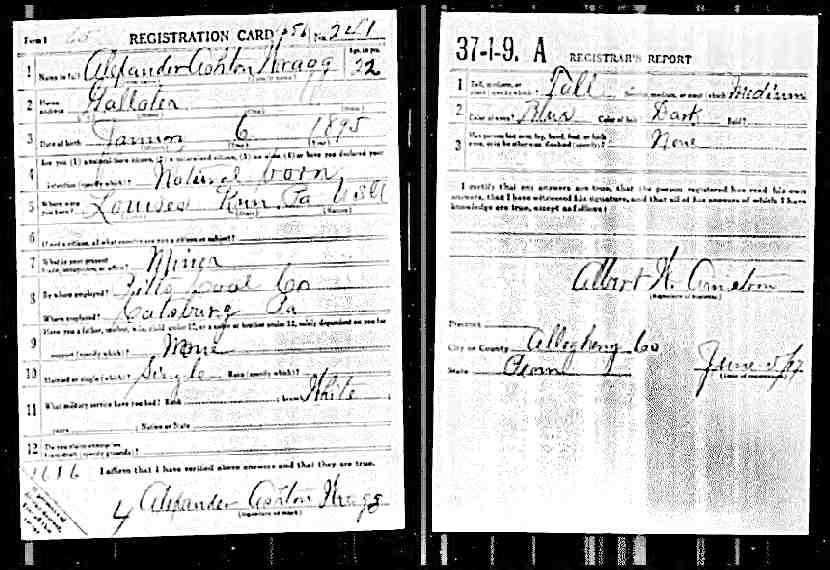 Form 1 65 REGISTRATION CARD 656 No. 241
1 Name in full Alexander Ashton Wragg Age, in yrs. 22
2 Home address Gallatin
(No.) (City) (State)
3 Date of birth January 6 1895
(Month) (Day) (Year)
4 Are you (1) a natural-born citizen, (2) a naturalized citizen, (3) an alien, (4) or have you declared your
intention (specify which)? Natural born
5 Where were you born? Run Pa USA
(State) (Nation)
6 If not a citizen, of what country are you a citizen or subject?
7 What is your present trade, occupation, or office? Miner
8 By whom employed? Coal Co
Where employed? Pa
9 Have you a father, mother, wife, child under 12, or a sister or brother under 12, solely dependent on you for
support (specify which)? None
10 Married or single (which)? Single Race (specify which)?
11 What military service have you had? Rank ; branch White
years ; Nation or State
12 Do you claim exemption from draft (specify grounds)?
1616 I affirm that I have verified above answers and that they are true.
4 Alexander Ashton Wragg
(Signature or mark)
37-1-9. A REGISTRAR'S REPORT
1 Tall, medium, or short (specify which)? Tall Slender, medium, or stout (which)? Medium
2 Color of eyes? Blue Color of hair? Dark Bald?
3 Has person lost arm, leg, hand, foot, or both eyes, or is he otherwise disabled (specify)? None
I certify that my answers are true, that the person registered has read his own
answers, that I have witnessed his signature, and that all of his answers of which I have
knowledge are true, except as follows:
Albert W.
(Signature of registrar)
Precinct
City or County Allegheny Co
State Penn June 5/17
(Date of registration)